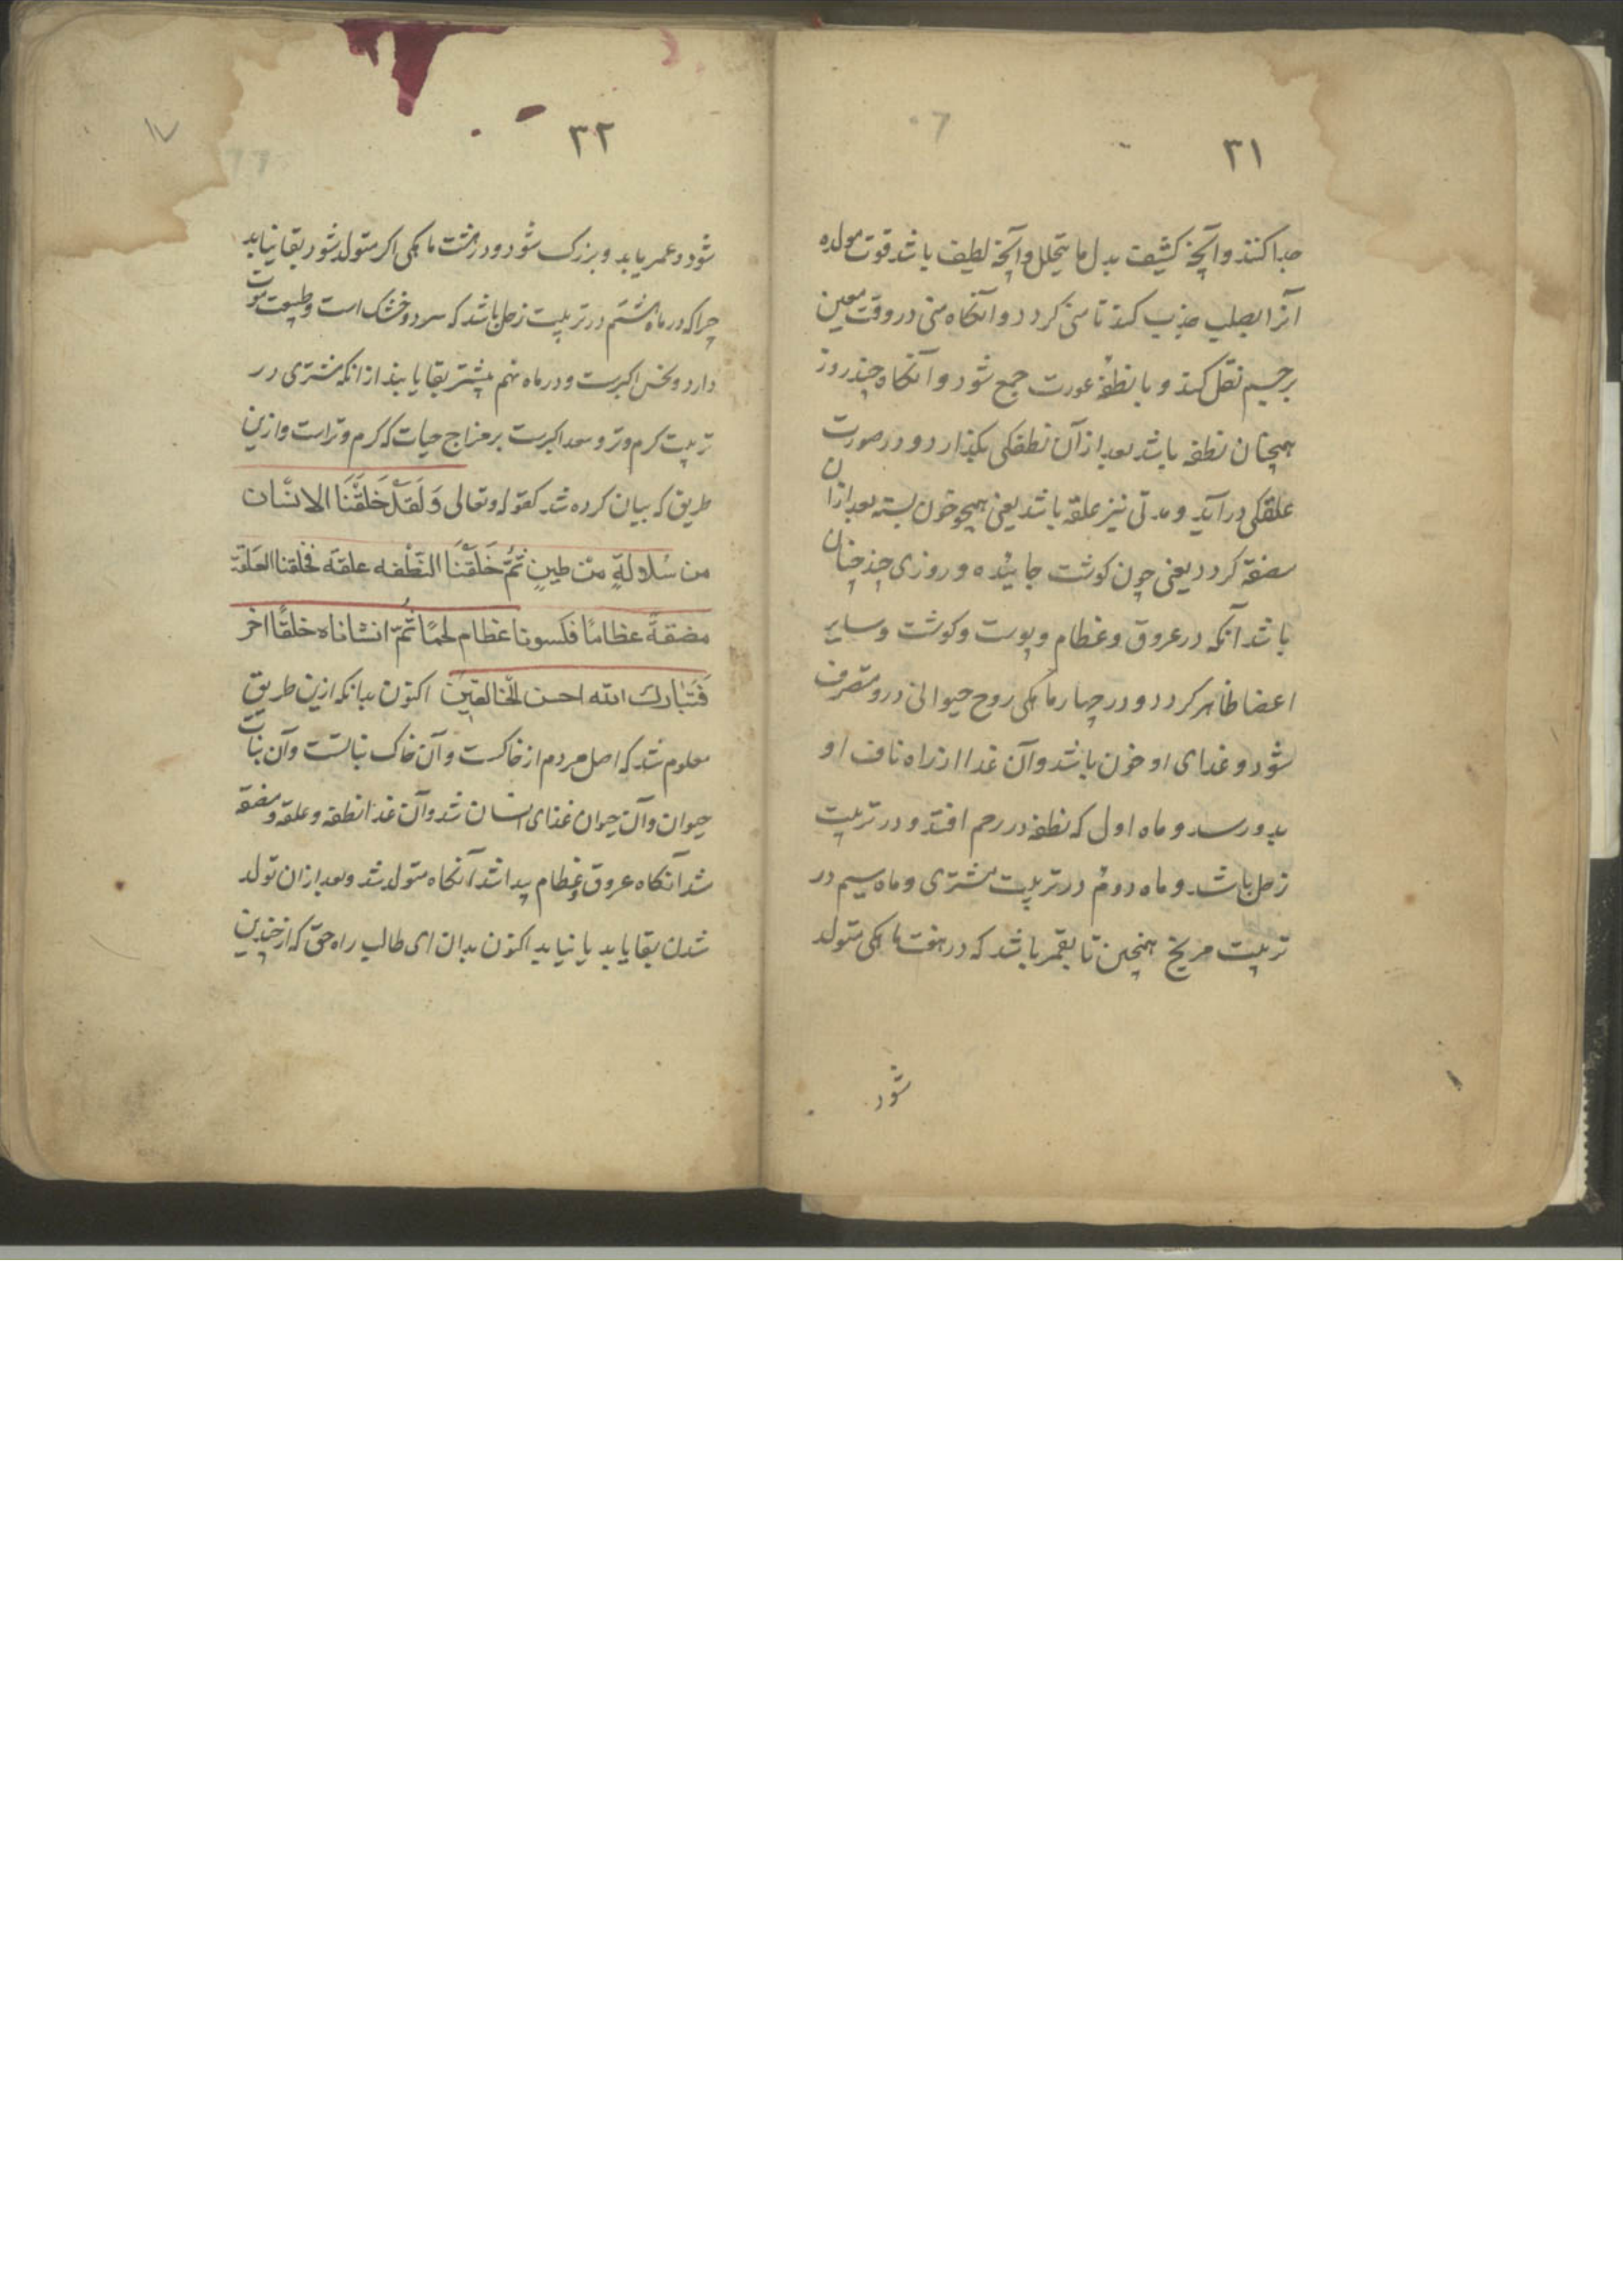 ۳۱
جدا کند و آنچه کثیف بدل ما یتحلل و آنچه لطیف باشد قوت مولده
آنرا بصلب جذب کند تا منی کردد و آنکاه منی در وقت معین
برحسم نقل کند و با نطفهٔ عورت جمع شود و آنکاه چند روز
همچنان نطفه باشد بعد از آن نطفکی بکذارد و در صورت
علقکی درآید و مدتی نیز علقه باشد یعنی همچو خون بسته بعد از ان
مضغه کردد یعنی چون کوشت جائیده و روزی چند چنان
باشد آنکه در عروق و عظام و پوست و کوشت و سایر
اعضا ظاهر کردد و در چهار ماهکی روح حیوانی درو متصرف
شود و غذای او خون باشد و آن غذا از راه ناف او
بدو رسد و ماه اول که نطفه در رحم افتد و در تربیت
زحل باشد و ماه دوم در تربیت مشتری و ماه سیم در
تربیت مریخ همچنین تا بقمر باشد که در هفت ماهکی متولد
شود
۳۲
شود و عمر یابد و بزرک شود و در هشت ماهکی اکر متولد شود بقا نیابد
چرا که در ماه هشتم در تربیت زحل باشد که سرد و خشک است و طبیعت موت
دارد و نحس اکبرست و در ماه نهم بیشتر بقا یابند از انکه مشتری در
تربیت کرم و تر و سعد اکبرست بر مزاج حیات که کرم و تر است و ازین
طریق که بیان کرده شد کقوله و تعالی وَلَقَدْ خَلَقْنَا الانسان
من سُلاولةٍ مِنْ طینٍ ثُمَّ خَلَقْنَا النطْفه علقه فخلقنا العلقة
مضقةً عظامًا فکسونا عظام لحمًا ثُمّ انشاناه خلقًا اخر
فَتَبٰارك الله احسن الْخالقین اکنون بدانکه ازین طریق
معلوم شد که اصل مردم از خاکست و آن خاک نباتست و آن نبات
حیوان و آن حیوان غذای انسان شد و آن غذا نطفه و علقه و مضغه
شد آنکاه عروق و عظام پیدا شد آنکاه متولد شد و بعد از ان تولد
شدن بقا یابد یا نیابد اکنون بدان ای طالب راه حق که از چندین